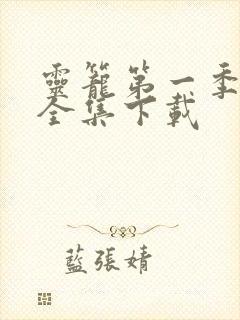 靈籠第一季
全集下載
藍張婧